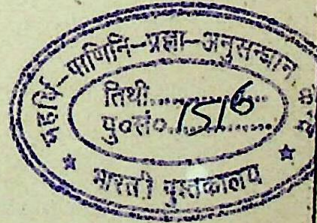 महर्षि-पाणिनि-प्रज्ञा-अनुसन्धान
तिथी..................
पु०सं० 1516
भारती पुस्तकालय